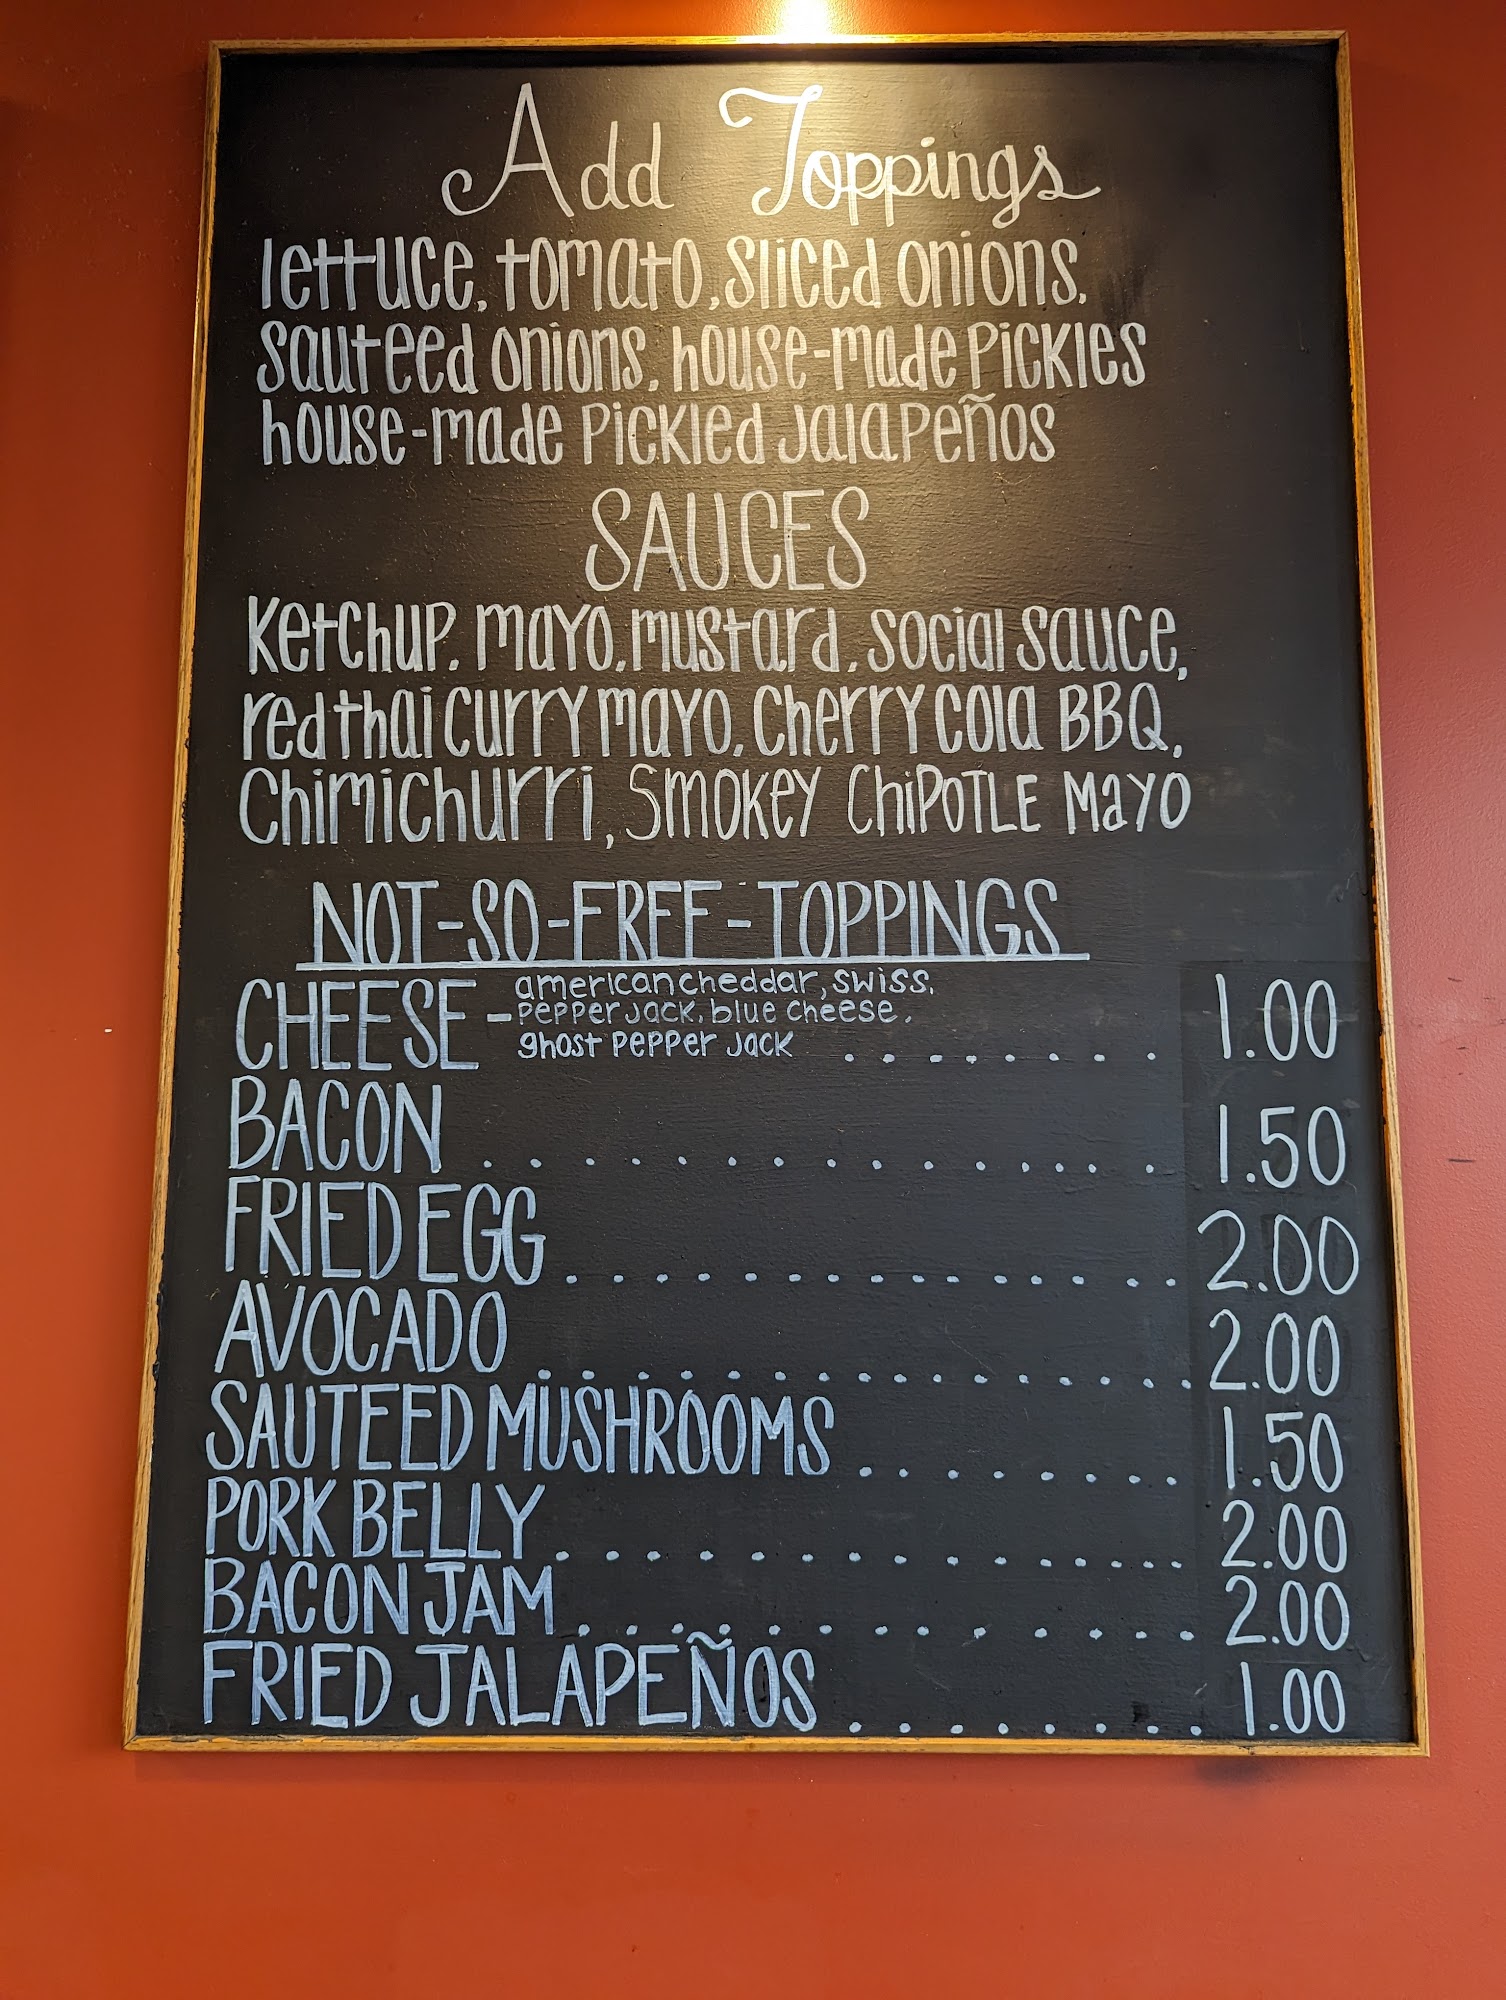 Add Toppings
lettuce, tomato, sliced onions,
sauteed onions, house-made pickles
house-made pickled jalapeños
SAUCES
Ketchup, mayo, mustard, social sauce,
red thai curry mayo, cherry cola BBQ,
Chimichurri, Smokey Chipotle Mayo
NOT-SO-FREE-TOPPINGS
CHEESE - american cheddar, swiss,
pepper jack, blue cheese,
ghost pepper jack . . . . . . . . 1.00
BACON . . . . . . . . . . . . . . . 1.50
FRIED EGG . . . . . . . . . . . . . . 2.00
AVOCADO . . . . . . . . . . . . . . 2.00
SAUTEED MUSHROOMS . . . . . . . . 1.50
PORK BELLY . . . . . . . . . . . . . . 2.00
BACON JAM . . . . . . . . . . . . . 2.00
FRIED JALAPEÑOS . . . . . . . . 1.00